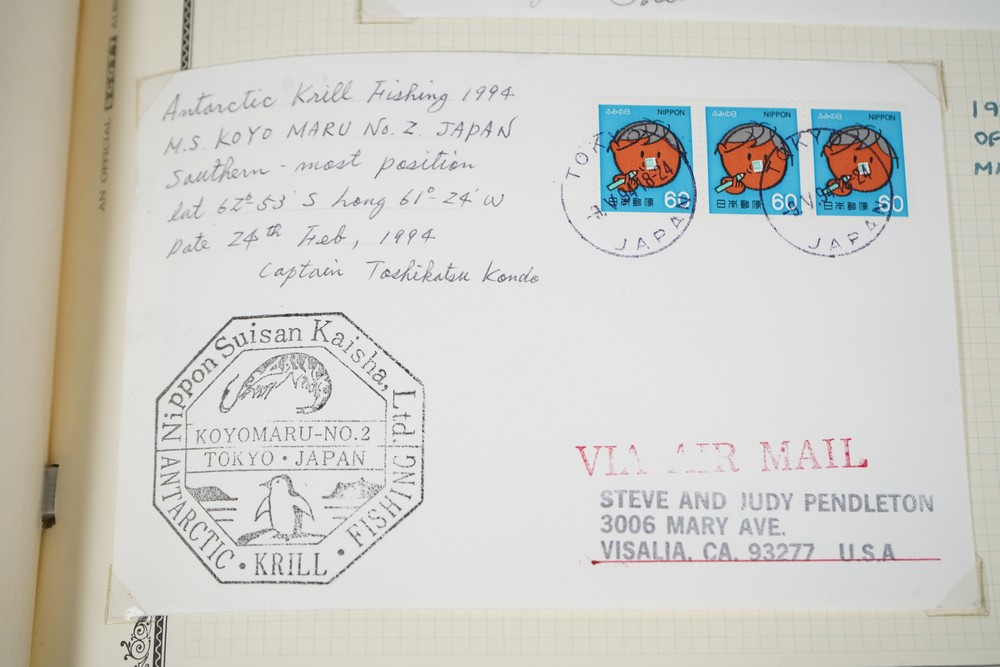 Antarctic Krill Fishing 1994
M.S. KOYO MARU No. 2. JAPAN
Southern-most position
Lat 62°-53' S Long 61°-24' W
Date 24th Feb, 1994
Captain Toshikatsu Kondo
ふみの日 NIPPON
60
日本郵便
ふみの日 NIPPON
60
日本郵便
ふみの日 NIPPON
60
日本郵便
TOKYO
JAPAN
TOKYO
JAPAN
Nippon Suisan Kaisha, Ltd.
KOYOMARU-NO.2
TOKYO・JAPAN
ANTARCTIC・KRILL・FISHING
VIA AIR MAIL
STEVE AND JUDY PENDLETON
3006 MARY AVE.
VISALIA, CA. 93277 U.S.A
AN OFFICIAL